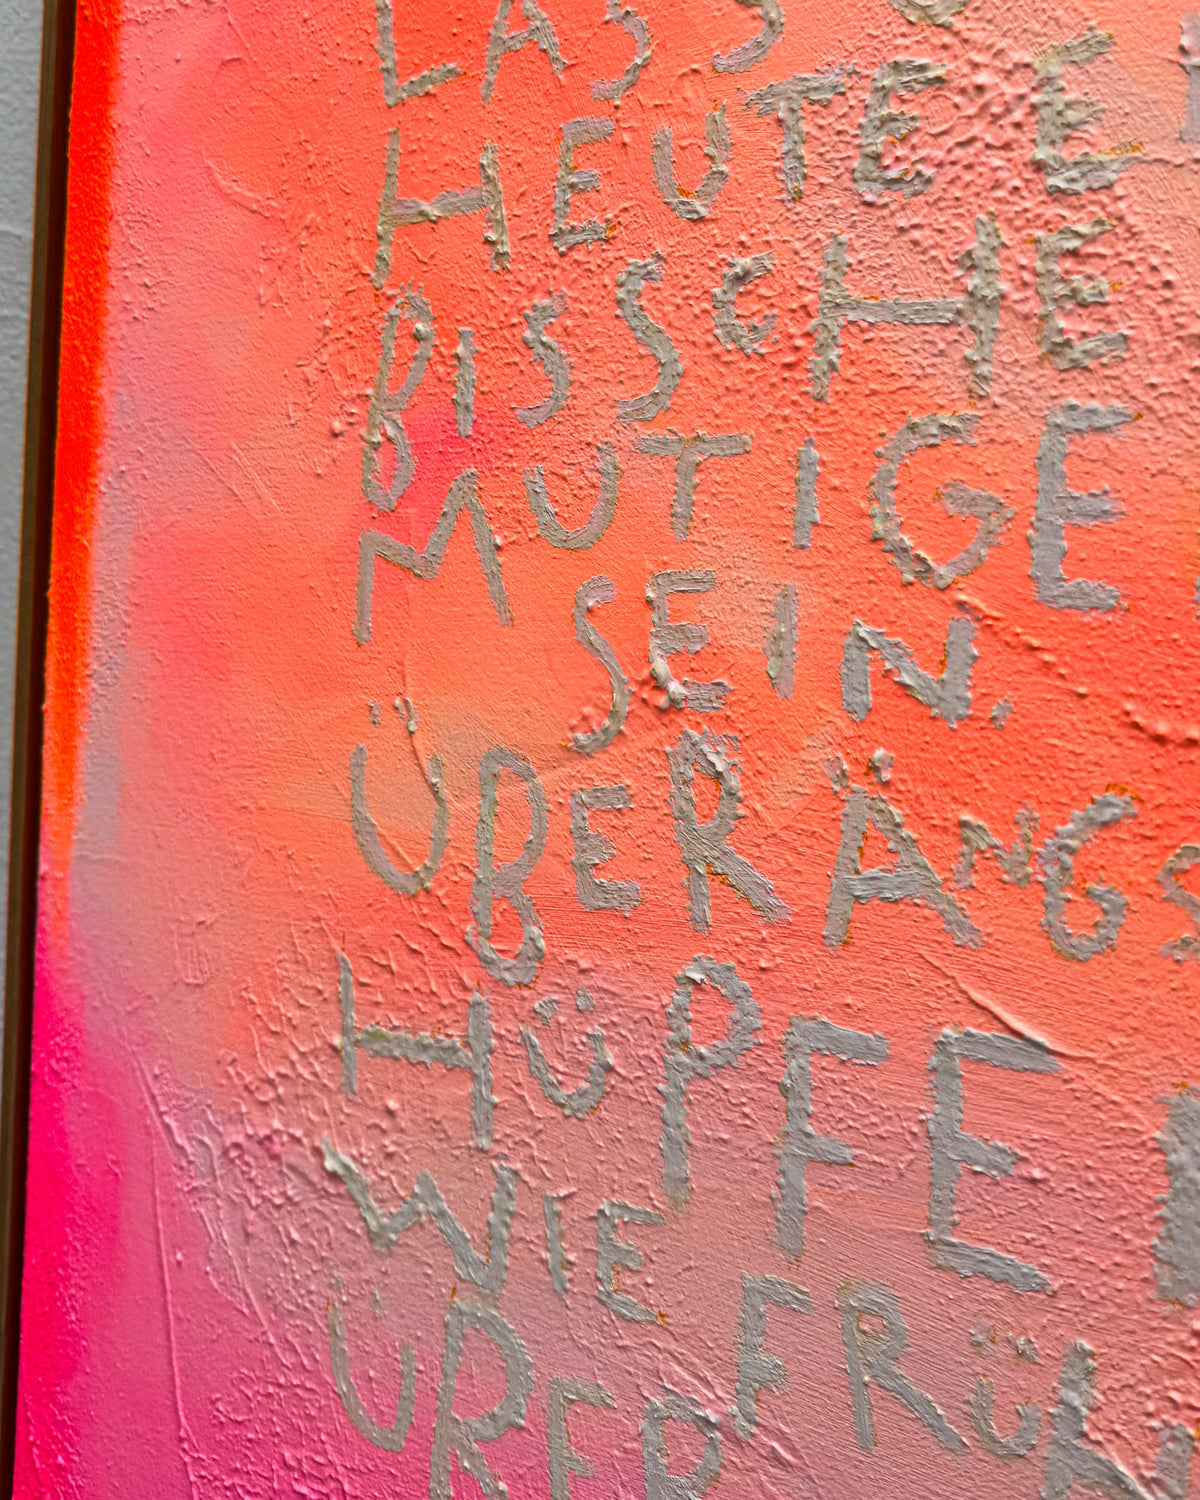 LASS
HEUTE E
BISSCHE
MUTIGE
SEIN.
ÜBER ÄNGS
HÜPFE
WIE
ÜBER FRÜH